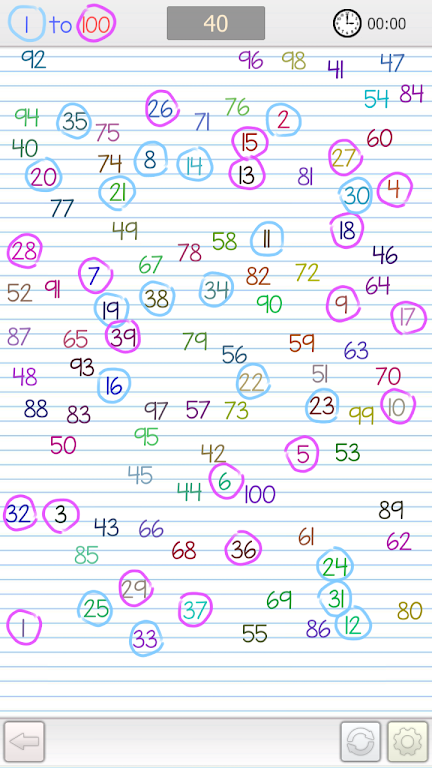 1 to 100 40 00:00
92 96 98 41 47
54 84
94 35 75 26 71 76 2
40 74 8 14 15 27 60
20 21 13 81 30 4
77
49 58 11 18
28 67 78 46
52 91 7 38 34 82 72 64
19 90 9 17
87 65 39 79 56 59 63
48 93 16 22 51 70
88 83 97 57 73 23 99 10
50 95 42 5 53
45 44 6 100
32 3 43 66 89
85 68 36 61 62
24
29
25 37 69 31 80
1 33 55 86 12